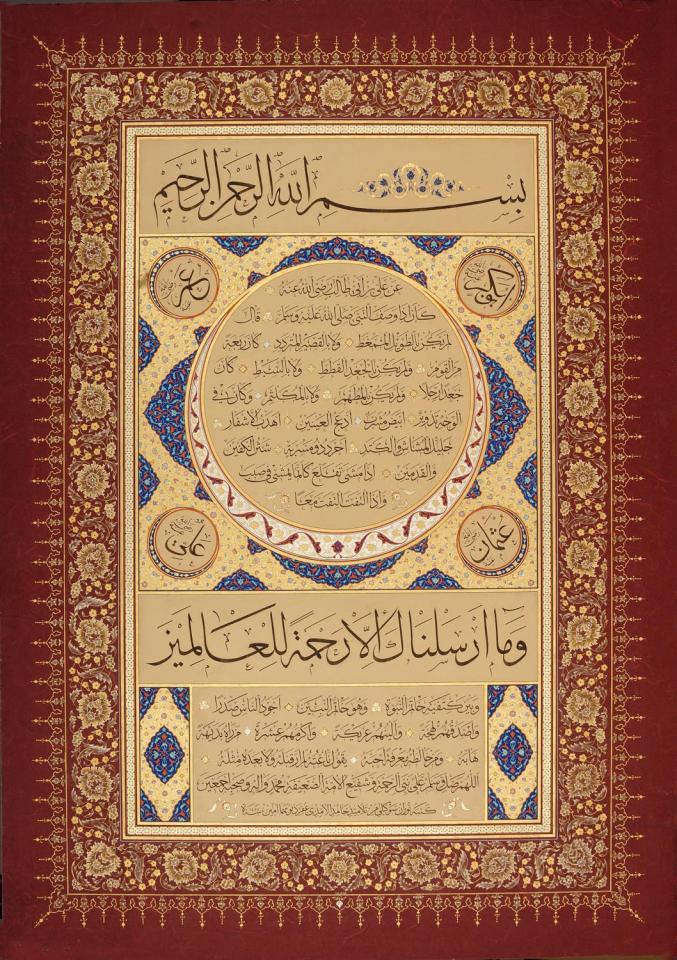 بسم الله الرحمن الرحيم
أبو بكر
عمر
عن علي بن أبي طالب رضي الله عنه
كان إذا وصف النبي صلى الله عليه وسلم قال
لم يكن بالطويل الممغط ولا بالقصير المتردد كان ربعة
من القوم ولم يكن بالجعد القطط ولا بالسبط كان
جعدا رجلا ولم يكن بالمطهم ولا بالمكلثم وكان في
الوجه تدوير أبيض مشرب أدعج العينين أهدب الأشفار
جليل المشاش والكتد أجرد ذو مسربة شثن الكفين
والقدمين إذا مشى تقلع كأنما يمشي في صبب
وإذا التفت التفت معا
عثمان
علي
وما أرسلناك إلا رحمة للعالمين
وبين كتفيه خاتم النبوة وهو خاتم النبيين أجود الناس صدرا
وأصدقهم لهجة وألينهم عريكة وأكرمهم عشرة من رآه بديهة
هابه ومن خالطه معرفة أحبه يقول ناعته لم أر قبله ولا بعده مثله
اللهم صل وسلم على نبي الرحمة وشفيع الأمة محمد وآله وصحبه أجمعين
من تلاميذ حامد الآمدي